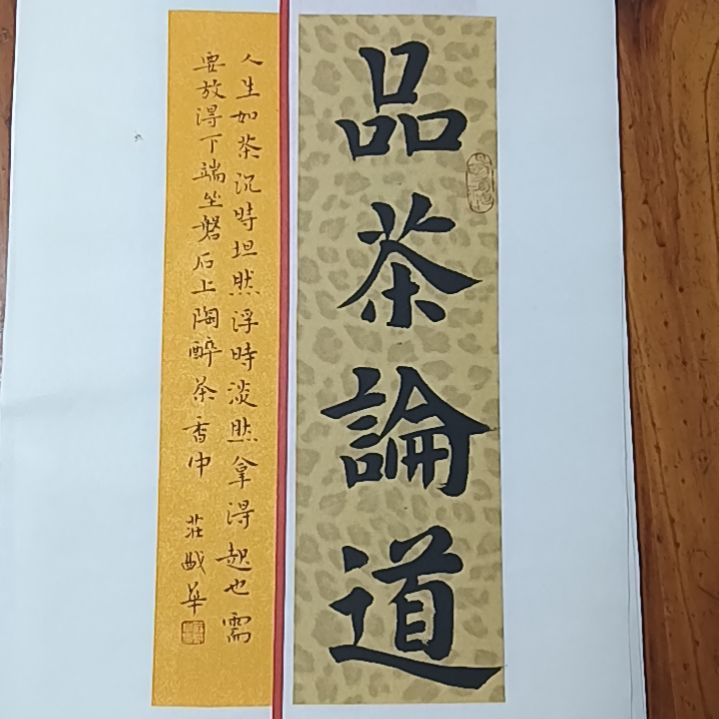 品茶論道
人生如茶沉時坦然浮時淡然拿得起也需
要放得下端坐磐石上陶醉茶香中
莊
華